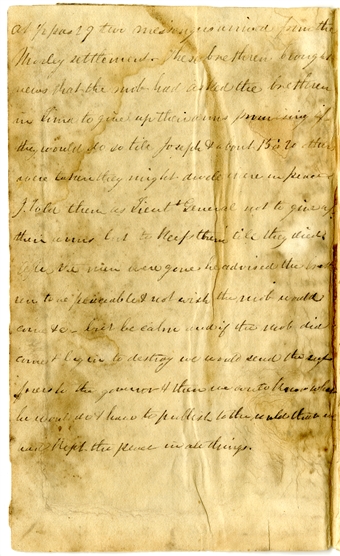 at ½ pas 9 two messengers arrived from the
Morley settlement. These brethren brought
news that the mob had asked the brethren
in Lima to give up their arms promising if
they would do so till Joseph & about 15 or 20 others
were taken they might dwell there in peace
I told them as Lieut General not to give up
their arms but to Keep them till they died
After the men were gone he advised the
ren to be peaceable & not wish the mob would
come &c. but be calm and if the mob did
come & begin to destroy we would send the
to the governor & then we would know what
he would do & have to publish to the world that we
had Kept the peace in all things.